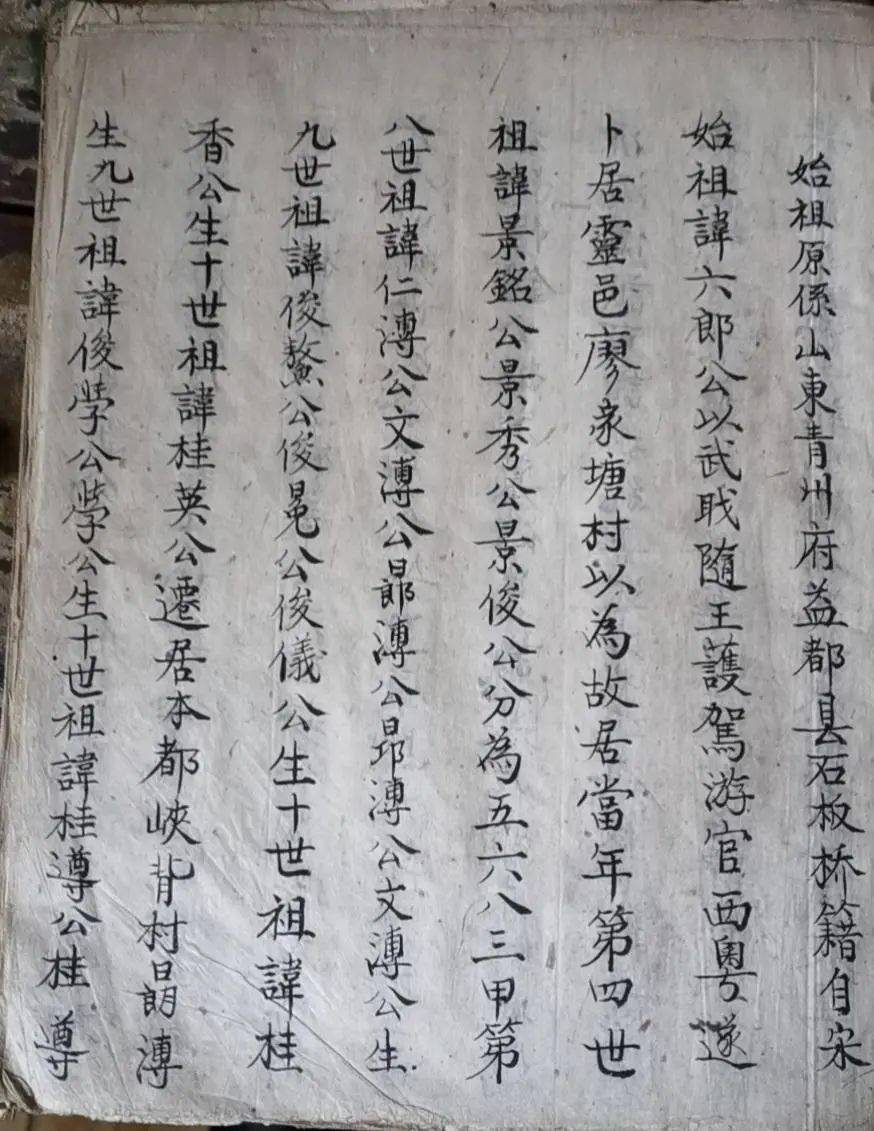 始祖原係山東青州府益都县石板桥籍自宋
始祖諱六郎公以武戝隨王護駕游官西粵遂
卜居靈邑廖家塘村以為故居當年第四世
祖諱景銘公景秀公景俊公分為五六八三甲第
八世祖諱仁溥公文溥公溥公昻溥公文溥公生
九世祖諱俊鰲公俊晃公俊儀公生十世祖諱桂
香公生十世祖諱桂英公遷居本都峽背村溥
生九世祖諱俊学公学公生十世祖諱桂遵公桂遵